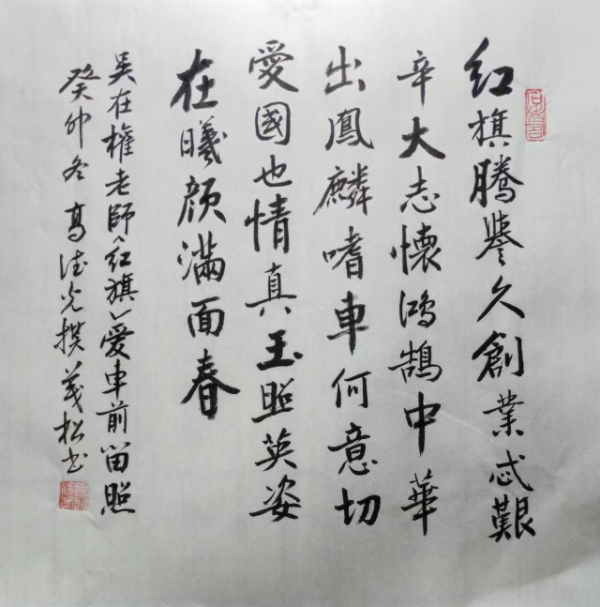 红旗騰譽久創業忒艱
辛大志懷鴻鵠中華
出鳳麟嗜車何意切
愛國也情真玉照英姿
在曦颜滿面春
吴在權老師《红旗》愛車前留照
癸卯冬高德光撰義松书